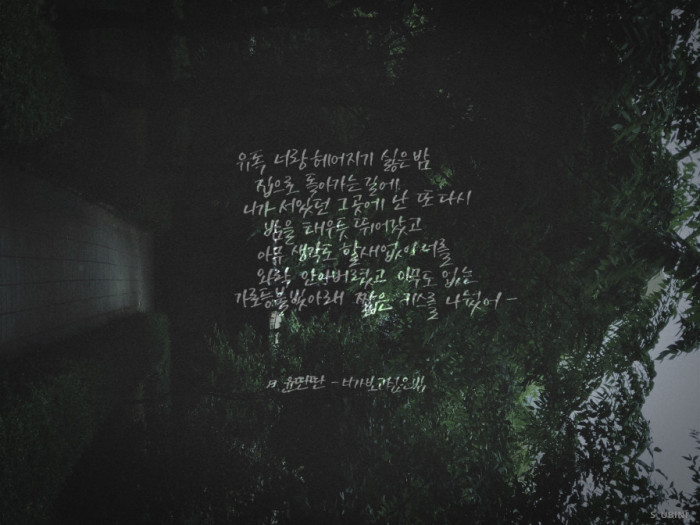 유독 너랑 헤어지기 싫은 밤
집으로 돌아가는 길에
니가 서있던 그곳에 난 또다시
밤을 태우듯 뛰어갔고
아무 생각도 할새없이 너를
와락 안아버렸고 아무도 없는
가로등불빛아래 짧은 키스를 나눴어 -
윤딴딴 - 니가보고싶은밤
S_UBIN